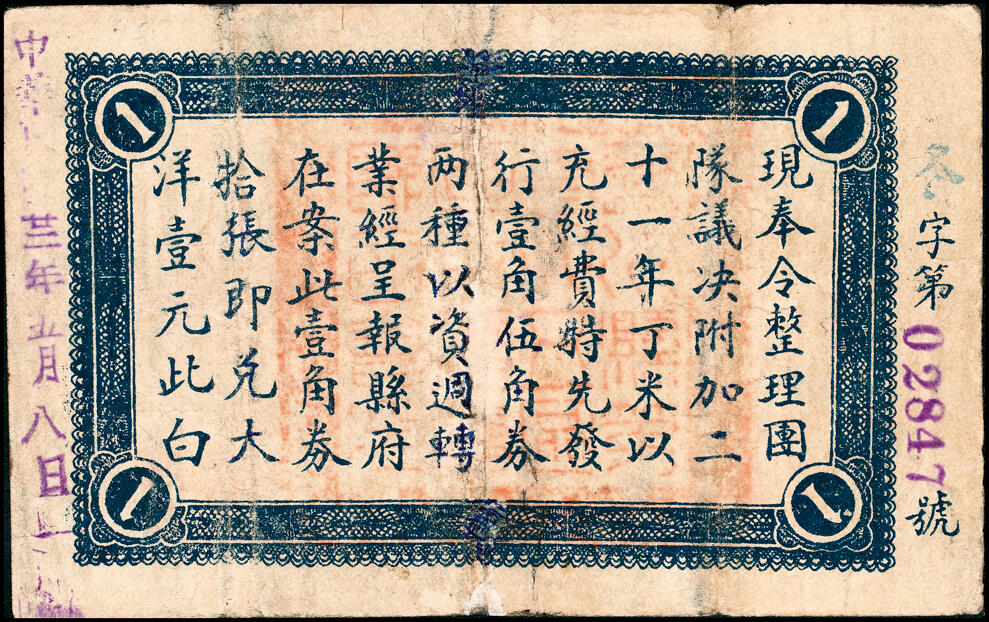 冬字第02847號
1
1
現奉令整理團
隊議决附加二
十一年丁米以
充經費特先發
行壹角伍角券
两種以資週轉
業經呈報縣府
在案此壹角券
拾張即兑大
洋壹元此白
1
1
中華
三年五月八日